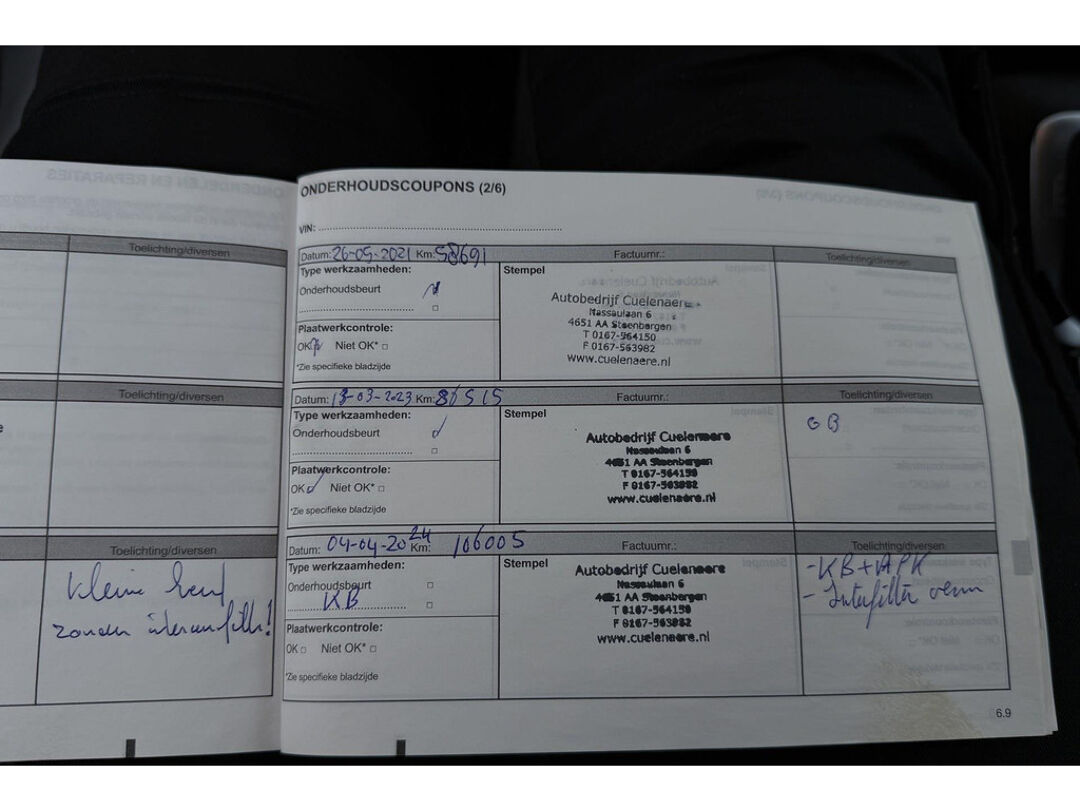 Toelichting/diversen
Toelichting/diversen
Toelichting/diversen
kleine beurt
zonder interieurfilter!
ONDERHOUDSCOUPONS (2/6)
VIN:
Datum: 26-05-2021 Km: 58691 Factuurnr.: Toelichting/diversen
Type werkzaamheden: Stempel
Onderhoudsbeurt
Plaatwerkcontrole:
OK Niet OK* □
*Zie specifieke bladzijde
Autobedrijf Cuelenaere
Nassaulaan 6
4651 AA Steenbergen
T 0167-564150
F 0167-563982
www.cuelenaere.nl
Datum: 13-03-2023 Km: 86515 Factuurnr.: Toelichting/diversen
Type werkzaamheden: Stempel
Onderhoudsbeurt
Plaatwerkcontrole:
OK Niet OK* □
*Zie specifieke bladzijde
Autobedrijf Cuelenaere
Nassaulaan 6
4651 AA Steenbergen
T 0167-564150
F 0167-563982
www.cuelenaere.nl
GB
Datum: 04-04-2024 Km: 106005 Factuurnr.: Toelichting/diversen
Type werkzaamheden: Stempel
Onderhoudsbeurt □
KB □
Plaatwerkcontrole:
OK □ Niet OK* □
*Zie specifieke bladzijde
Autobedrijf Cuelenaere
Nassaulaan 6
4651 AA Steenbergen
T 0167-564150
F 0167-563982
www.cuelenaere.nl
-KB+APK
- Interfilter
6.9